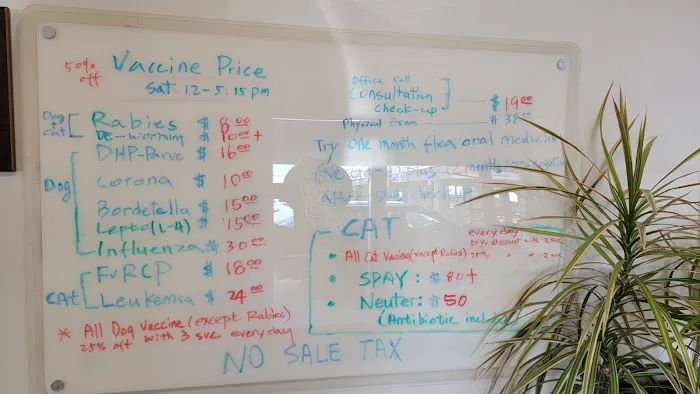 50% off
Vaccine Price
Sat. 12-5:15 pm
Dog + Cat
Rabies $ 8.00
De-worming $ 10.00 +
Dog
DHP-Parvo $ 16.00
Corona $ 10.00
Bordetella $ 15.00
Lepto (1-4) $ 15.00
Influenza $ 30.00
CAt
FVRCP $ 18.00
Leukemia $ 24.00
* All Dog Vaccine (except Rabies)
25% off with 3 svc everyday
NO SALE TAX
Office Call
Consultation
check-up $ 19.00
Physical Exam $ 38.00
Try one month flea oral medicin
CAT
everyday
discount with 2 svc
• All Cat Vaccine (except Rabies) 25%
• SPAY: $ 80+
• Neuter: $ 50
(Antibiotic incl